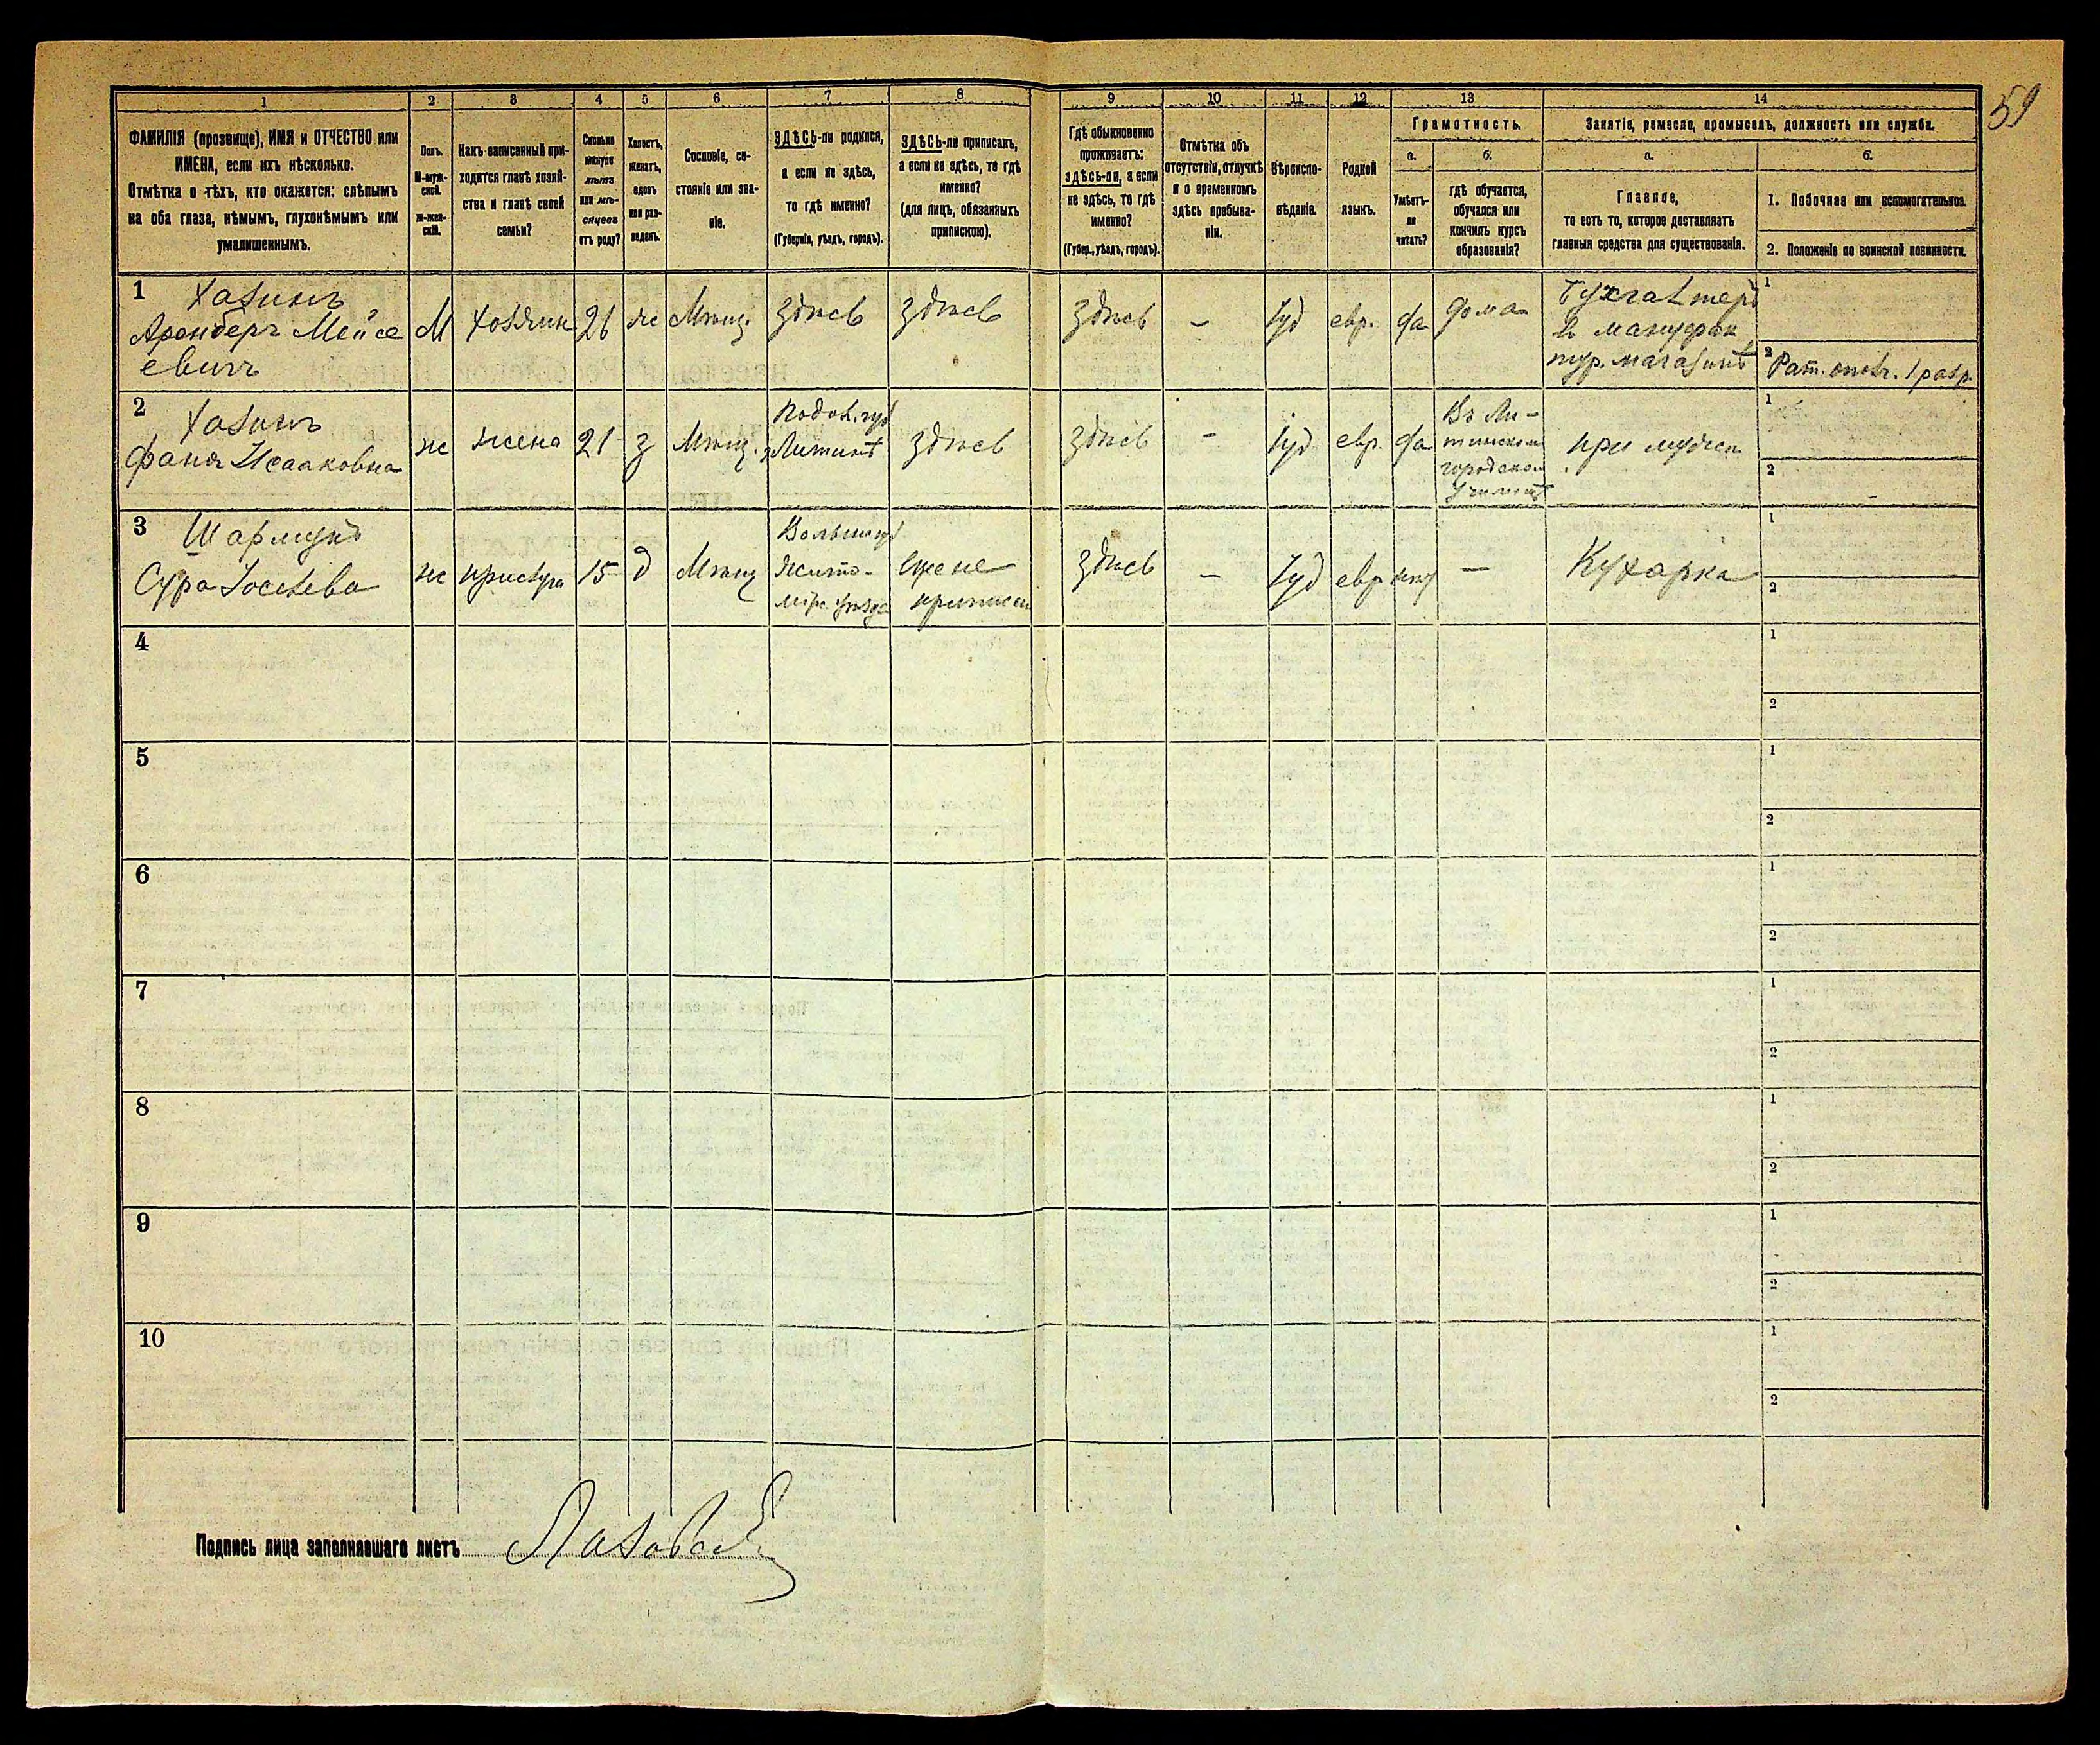 59
1 2 3 4 5 6 7 8 9 10 11 12 13 14
ФАМИЛІЯ (прозвище), ИМЯ и ОТЧЕСТВО или
ИМЕНА, если ихъ нѣсколько.
Отмѣтка о тѣхъ, кто окажется: слѣпымъ
на оба глаза, нѣмымъ, глухонѣмымъ или
умалишеннымъ.
Полъ.
М-муж-
ской.
ж-жен-
скій.
Какъ записанный при-
ходится главѣ хозяй-
ства и главѣ своей
семьи?
Сколько
минуло
лѣтъ
или мѣ-
сяцевъ
отъ роду?
Холостъ,
женатъ,
вдовъ
или раз-
веденъ.
Сословіе, со-
стояніе или зва-
ніе.
ЗДѢСЬ-ли родился,
а если не здѣсь,
то гдѣ именно?
(Губернія, уѣздъ, городъ).
ЗДѢСЬ-ли приписанъ,
а если не здѣсь, то гдѣ
именно?
(для лицъ, обязанныхъ
припискою).
Гдѣ обыкновенно
проживаетъ:
здѣсь-ли, а если
не здѣсь, то гдѣ
именно?
(Губер., уѣздъ, городъ).
Отмѣтка объ
отсутствіи, отлучкѣ
и о временномъ
здѣсь пребыва-
ніи.
Вѣроиспо-
вѣданіе.
Родной
языкъ.
Грамотность.
а.
Умѣетъ-
ли
читать?
б.
гдѣ обучается,
обучался или
кончилъ курсъ
образованія?
Занятіе, ремесло, промыселъ, должность или служба.
а.
Главное,
то есть то, которое доставляетъ
главныя средства для существованія.
б.
1. Побочное или вспомогательное.
2. Положеніе по воинской повинности.
1 Хазинъ
Аронберъ Мойсе
евичъ
М
Хозяин
26
ж
Мѣщ.
здѣсь
здѣсь
здѣсь
–
Іуд
евр.
да
дома
Бухгалтеръ
в мануфак
тур. магазинѣ
1
2 Рат. опол. 1 разр.
2 Хазинъ
Фаня Исааковна
ж
жена
21
з
Мѣщ.
Подол. губ
Литинѣ
здѣсь
здѣсь
–
Іуд
евр.
да
Въ Ли-
тинском
городском
училищѣ
при муже
1
2
3 Шармукъ
Сура Іоселева
ж
прислуга
15
д
Мѣщ
Волын губ
Жито-
мір. уѣзда
еще не
приписан
здѣсь
–
Іуд
евр
нет
–
Кухарка
1
2
4
1
2
5
1
2
6
1
2
7
1
2
8
1
2
9
1
2
10
1
2
Подпись лица заполнявшаго листъ